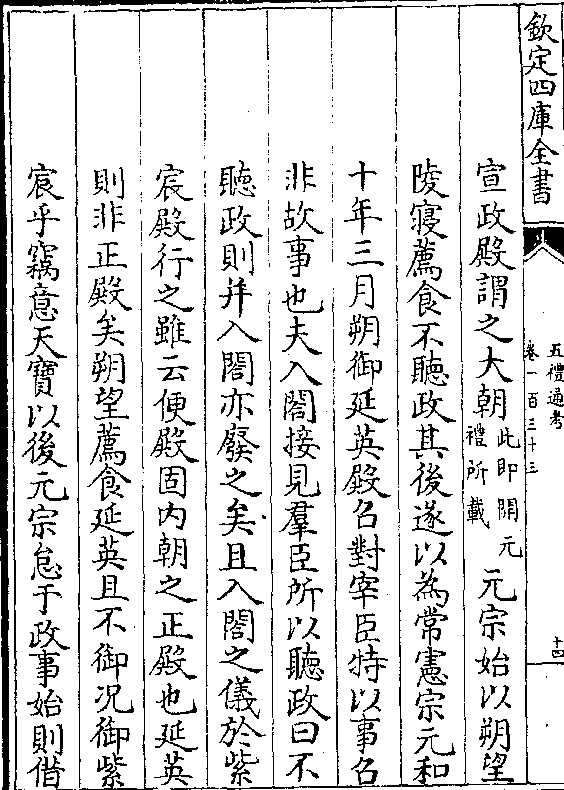 欽定四庫全書
五禮通考
卷一百三十三
十四
宣政殿謂之大朝此即開元禮所載元宗始以朔望
陵寢薦食不聽政其後遂以為常憲宗元和
十年三月朔御延英殿召對宰臣特以事召
非故事也夫入閤接見羣臣所以聽政曰不
聽政則并入閤亦廢之矣且入閤之儀於紫
宸殿行之雖云便殿固内朝之正殿也延英
則非正殿矣朔望薦食延英且不御况御紫
宸乎竊意天寶以後元宗怠于政事始則借